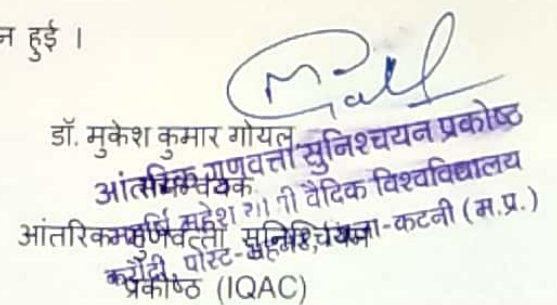 न हुई ।
डॉ. मुकेश कुमार गोयल
समन्वयक
आंतरिक गुणवत्ता सुनिश्चियन
प्रकोष्ठ (IQAC)
आंतरिक गुणवत्ता सुनिश्चयन प्रकोष्ठ
महर्षि महेश योगी वैदिक विश्वविद्यालय
करौंदी, पोस्ट- -कटनी (म.प्र.)